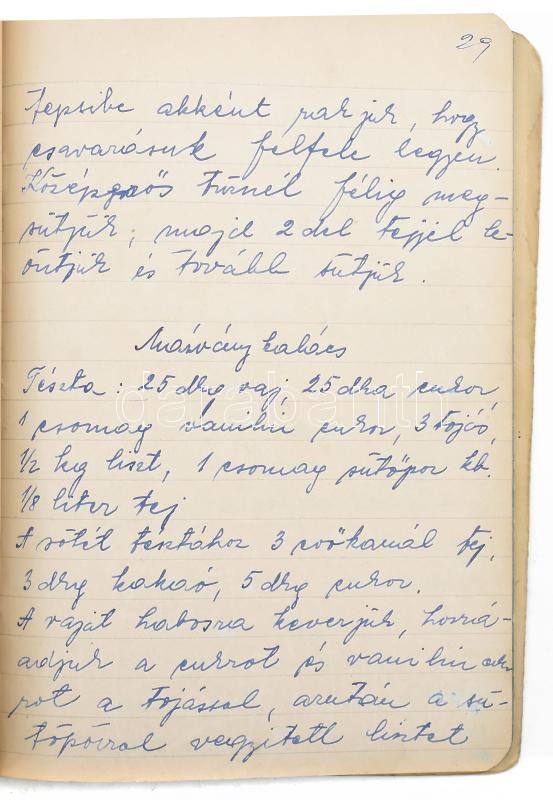 29
Tepsibe akként rakjuk, hogy
csavarásuk felfele legyen.
Középerős tűznél félig meg-
sütjük, majd 2 del tejjel le-
öntjük és tovább sütjük.
Márvány kalács
Tészta: 25 dkg vaj, 25 dka cukor
1 csomag vanilin cukor, 3 tojás,
1/2 kg liszt, 1 csomag sütőpor kb.
1/8 liter tej
A sötét tésztához 3 evőkanál tej,
3 dkg kakaó, 5 dkg cukor.
A vajat habosra keverjük, hozzá-
adjuk a cukrot és vanilin cuk
rot a tojással, azután a sü-
tőporral vegyitett lisztet
darabanth